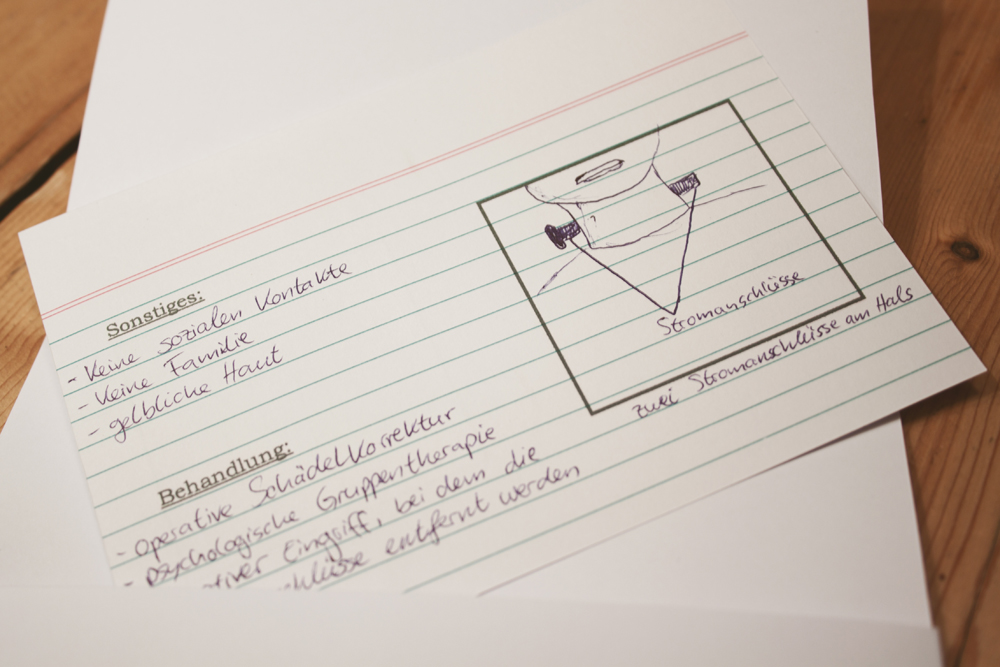 Sonstiges:
- Keine sozialen Kontakte
- Keine Familie
- gelbliche Haut
Stromanschlüsse
zwei Stromanschlüsse am Hals
Behandlung:
- operative Schädelkorrektur
- psychologische Gruppentherapie
Eingriff, bei dem die
entfernt werden